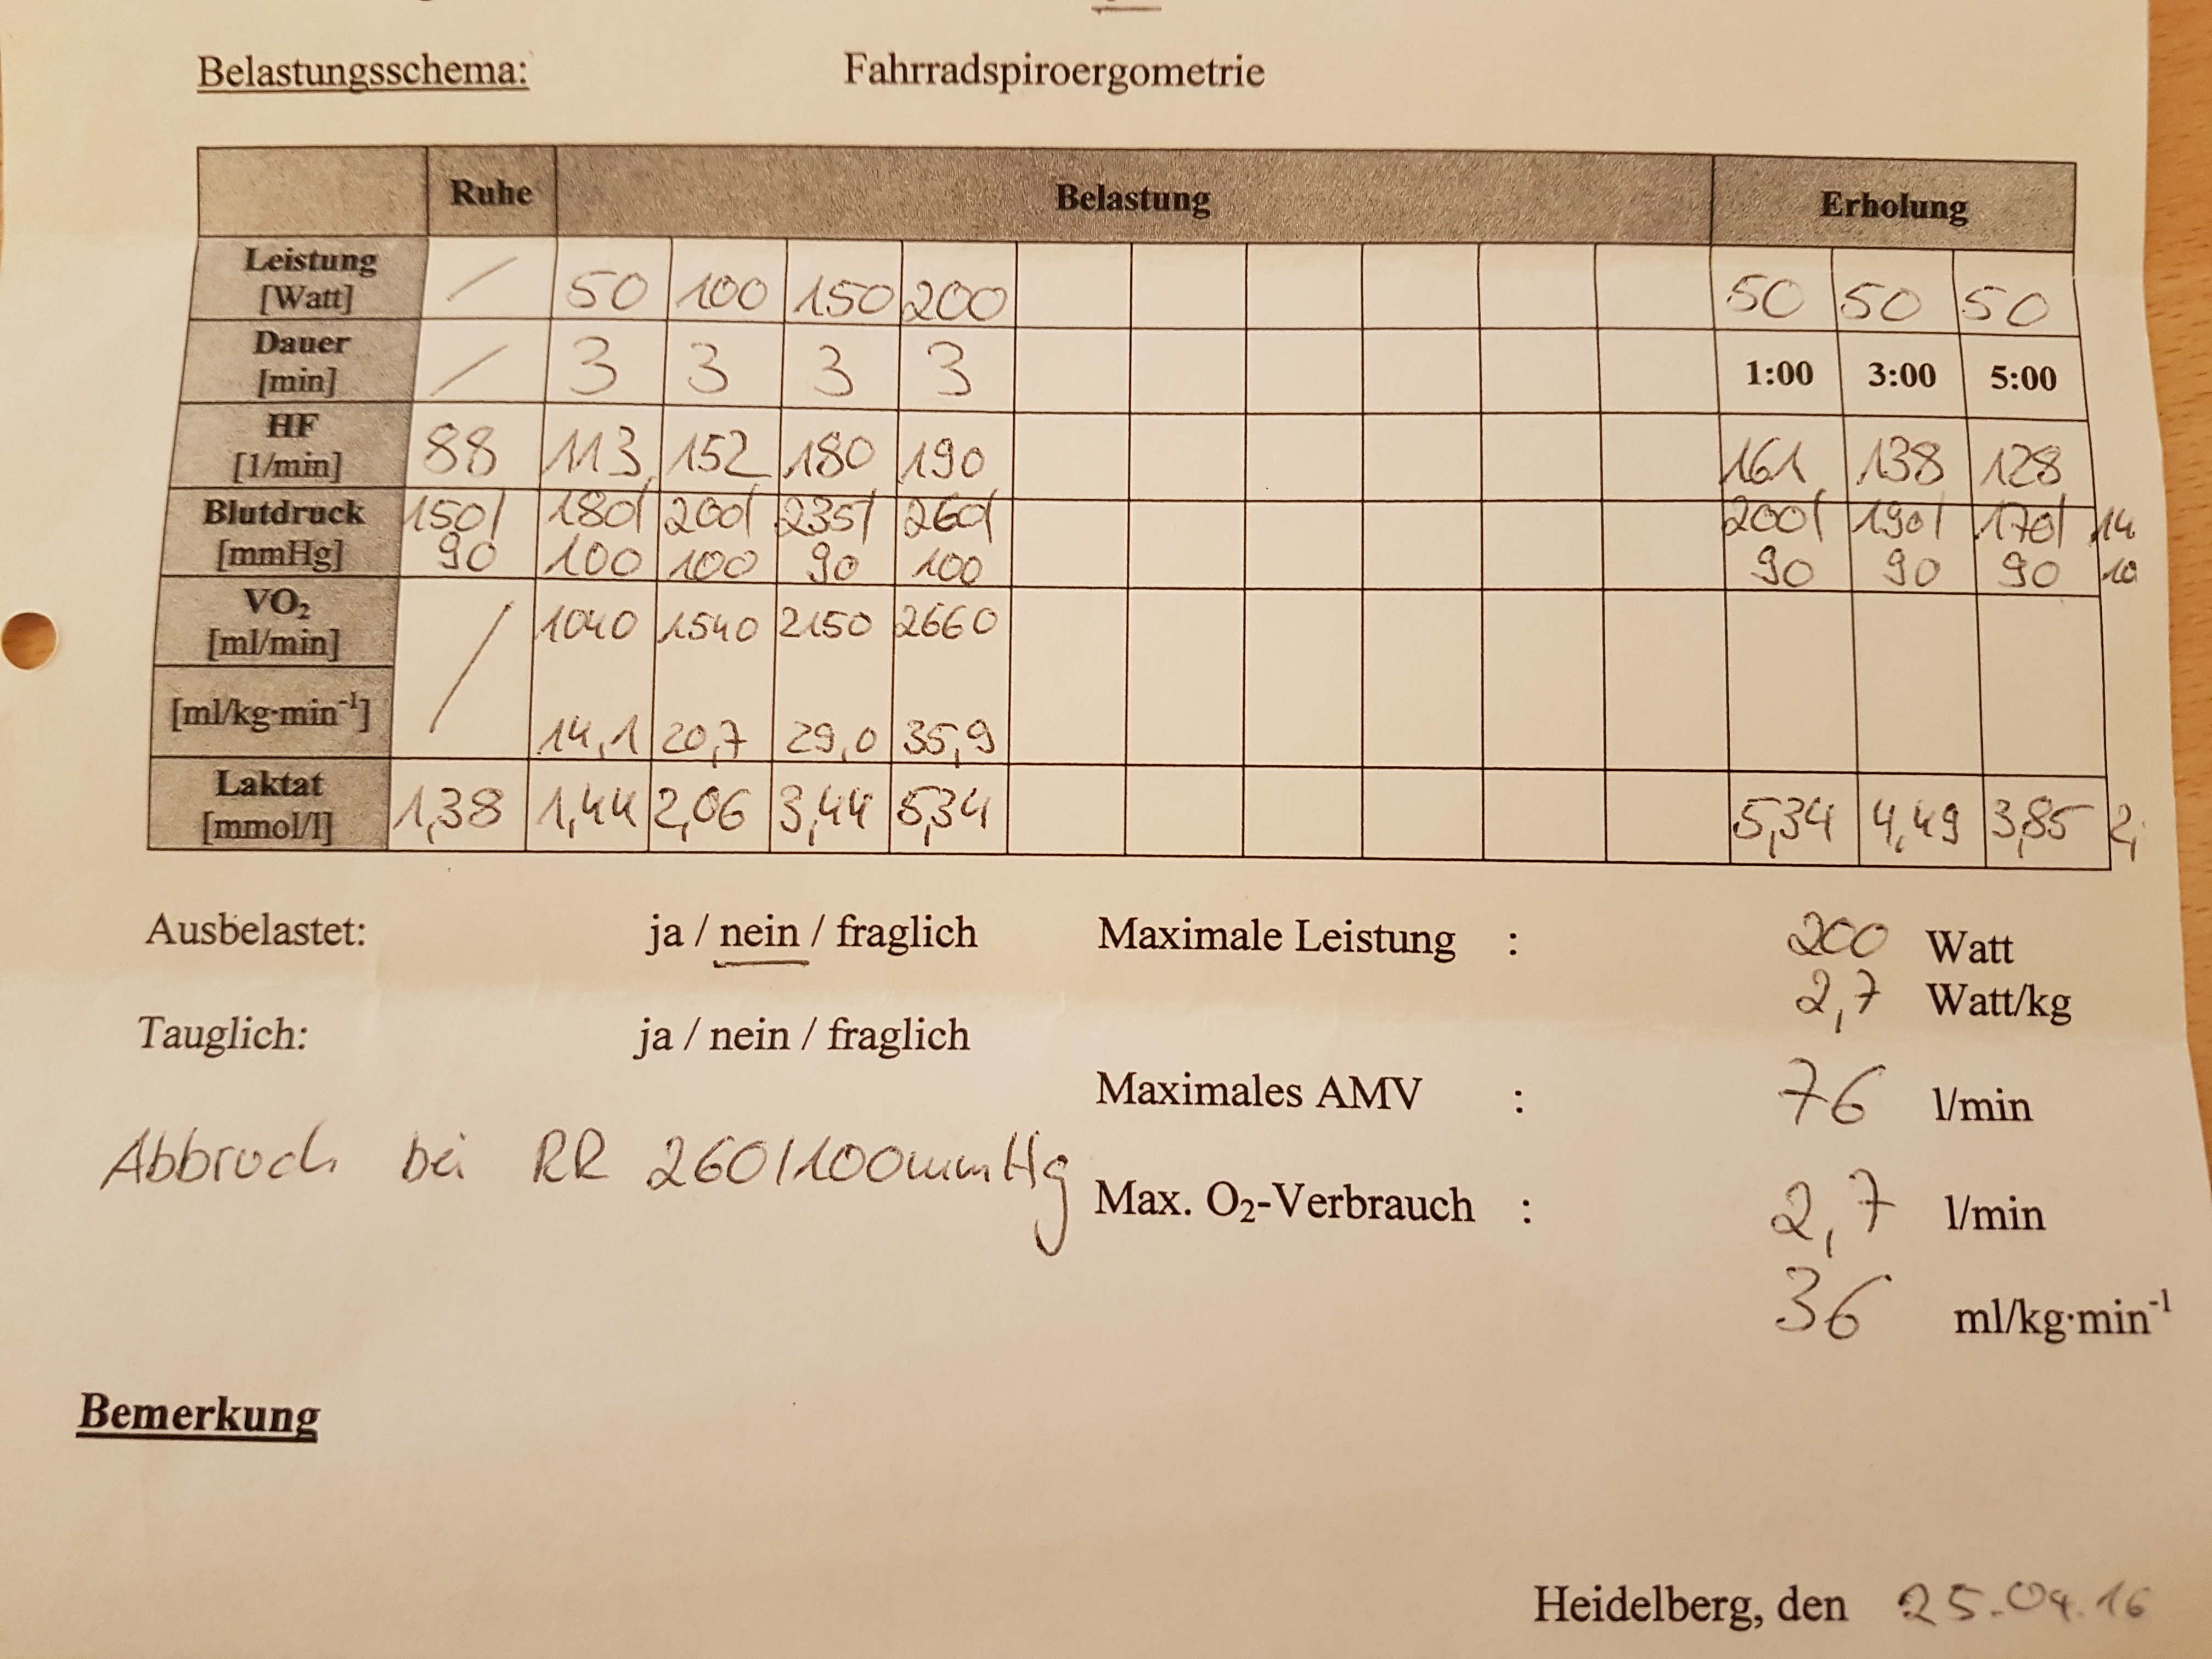 Belastungsschema: Fahrradspiroergometrie
Ruhe Belastung Erholung
Leistung [Watt] / 50 100 150 200 50 50 50
Dauer [min] / 3 3 3 3 1:00 3:00 5:00
HF [1/min] 88 113 152 180 190 161 138 128
Blutdruck [mmHg] 150/90 180/100 200/100 235/90 260/100 200/90 190/90 170/90 14 10
VO₂ [ml/min] / 1040 1540 2150 2660
[ml/kg·min⁻¹] 14,1 20,7 29,0 35,9
Laktat [mmol/l] 1,38 1,44 2,06 3,44 5,34 5,34 4,49 3,85 2,
Ausbelastet: ja / nein / fraglich Maximale Leistung : 200 Watt
2,7 Watt/kg
Tauglich: ja / nein / fraglich
Maximales AMV : 76 l/min
Abbruch bei RR 260/100mmHg
Max. O₂-Verbrauch : 2,7 l/min
36 ml/kg·min⁻¹
Bemerkung
Heidelberg, den 25.04.16